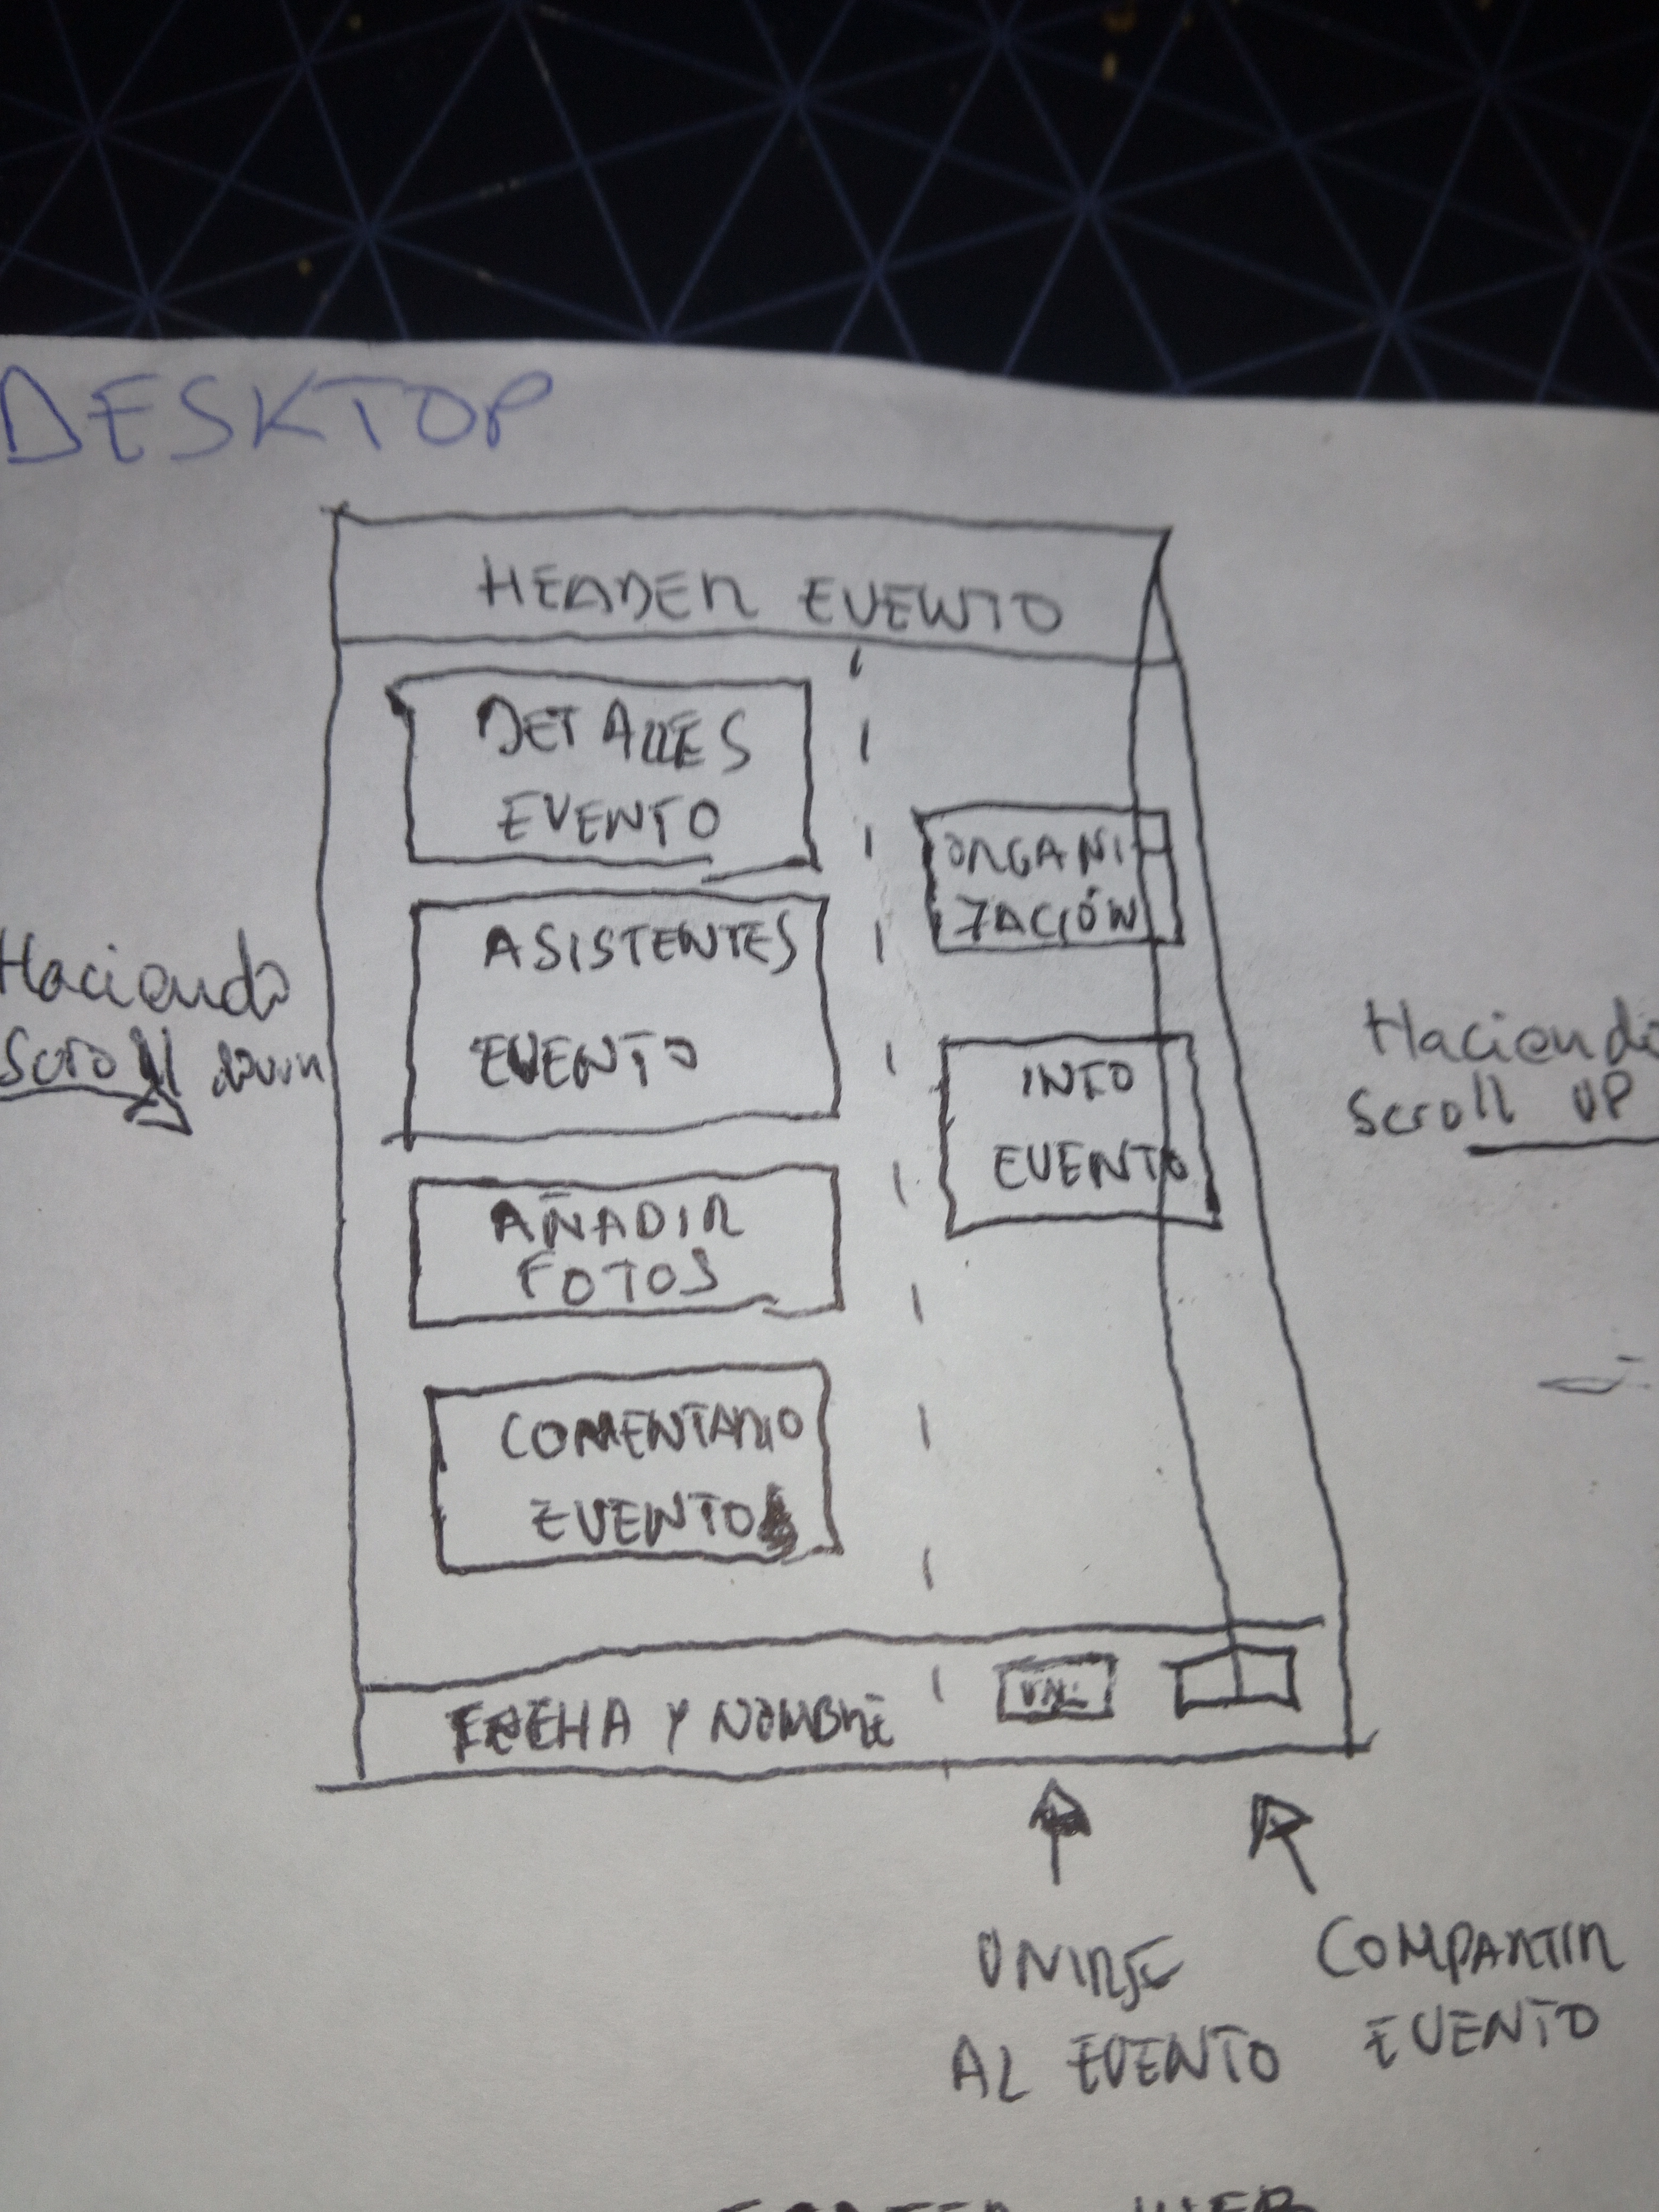 DESKTOP
HEADER EVENTO
DETALLES
EVENTO
ASISTENTES
EVENTO
AÑADIR
FOTOS
COMENTARIO
EVENTO
ORGANI-
ZACIÓN
INFO
EVENTO
Haciendo
Scroll down
Haciendo
Scroll UP
FECHA Y NOMBRE
UNIRSE
AL EVENTO
COMPARTIR
EVENTO